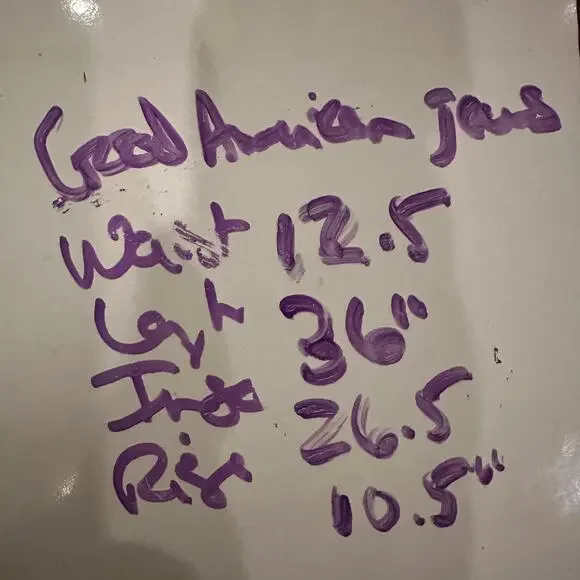 Good American Jeans
Waist 12.5
Length 36"
Inseam 26.5
Rise 10.5"